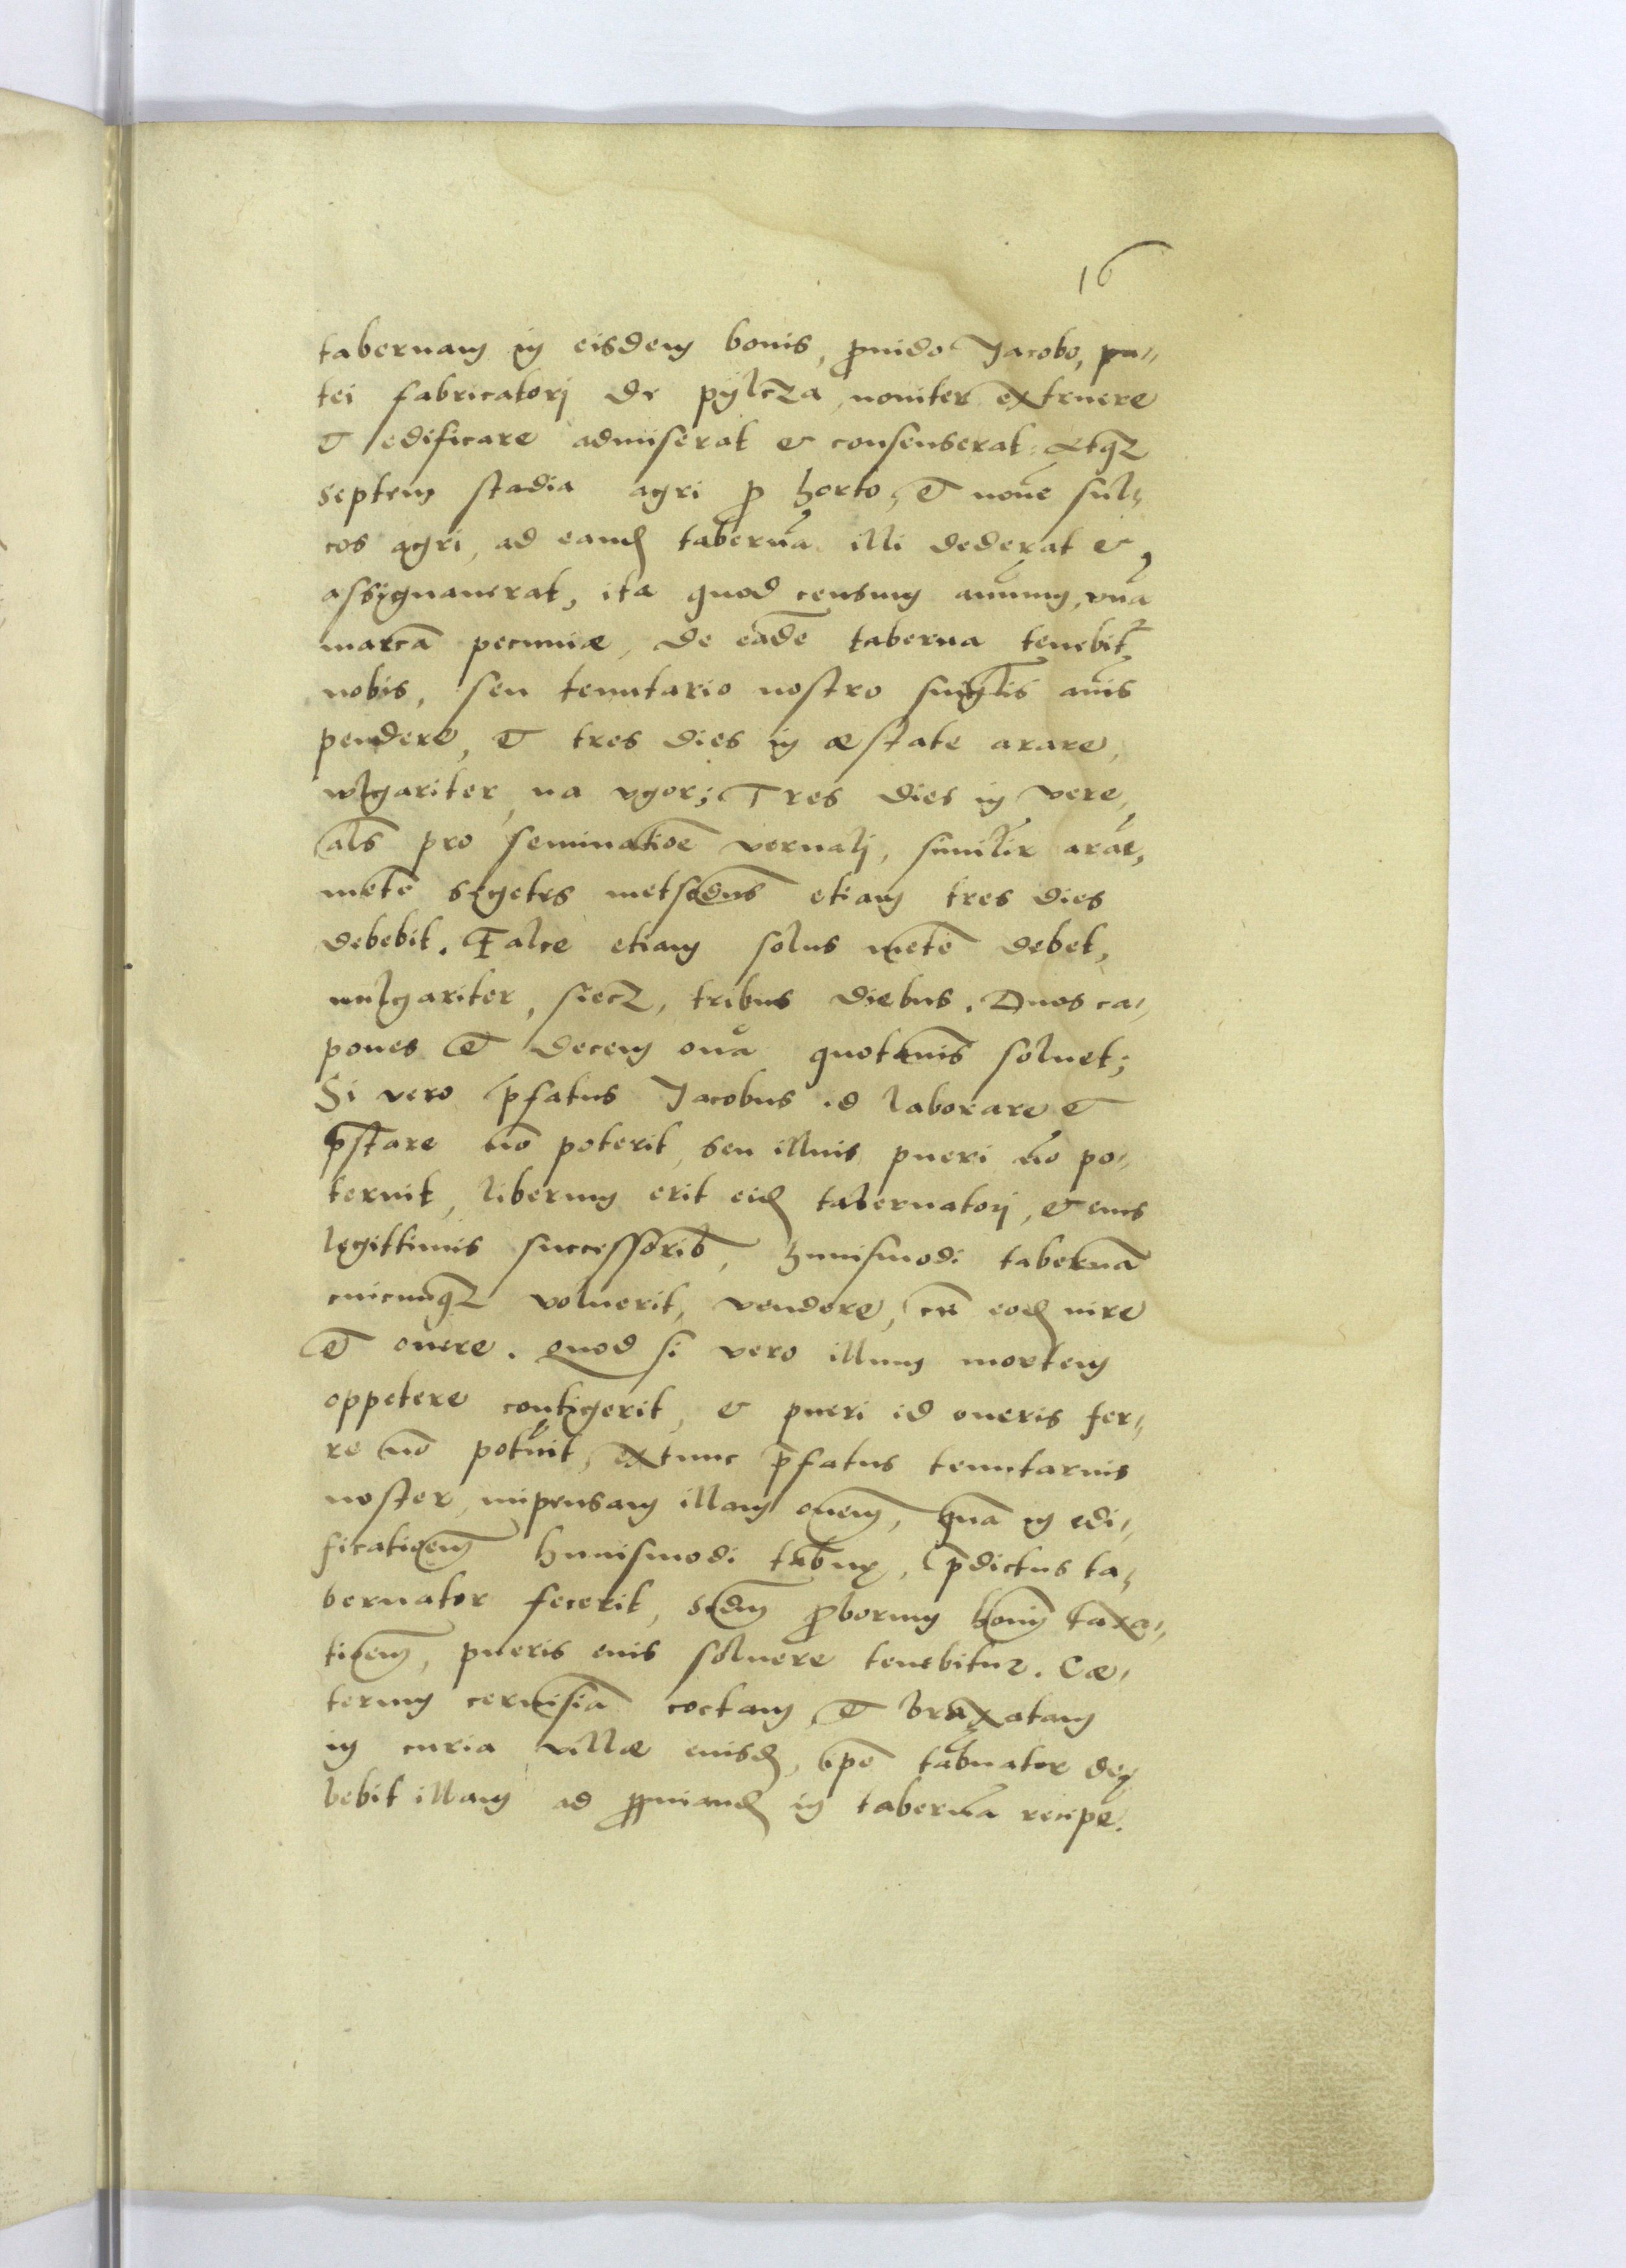 16
tabernam in eisdem bonis, ꝓuido Jacobo, pu-
tei fabricatorj de pylcza, nouiter extruere
et edificare admiserat et consenserat: Atqꝫ
septem stadia agri ꝓ horto, et nouē sul-
cos agri, ad eand tabernā illi dederat et
assignauerat, ita quod censum annuum, vnā
marcā pecuniæ, de eadē taberna tenebit̃
nobis, seu tenutario nostro singlis annis
pendere, et tres dies in æstate arare,
wlgariter na vgor; Tres dies in vere,
als pro seminatioē vernalj, similir arar̃,
metē segetes metendus etiam tres dies
debebit. Falce etiam solus metē debet,
uulgariter, siecz, tribus diebus. Duos ca-
pones et decem oua quotannis soluet;
Si vero p̄fatus Jacobus id laborare et
p̄stare nō poterit, seu illius pueri nō po-
terint, liberum erit eid tabernatorj, et eius
legittimis successorib, huiusmodi tabernā
cuicunqꝫ voluerit, vendere, cū eod iure
et onere. Quod si vero illum mortem
oppetere contigerit, et pueri id oneris fer-
re nō potint, extunc p̄fatus tenutarius
noster, impensam illam oem̄, quā in edi-
ficatioem̄ huiusmodi tabnæ, p̄dictus ta-
bernator fecerit, scdm̄ ꝓborum hoim̄ taxa-
tioem̄, pueris eius soluere tenebitur. Cæ-
terum ceruisiā coctam et braxatam
in curia villæ eiusd, ip̄e tabnator de-
bebit illam ad ꝓpinand in tabernā recipe.